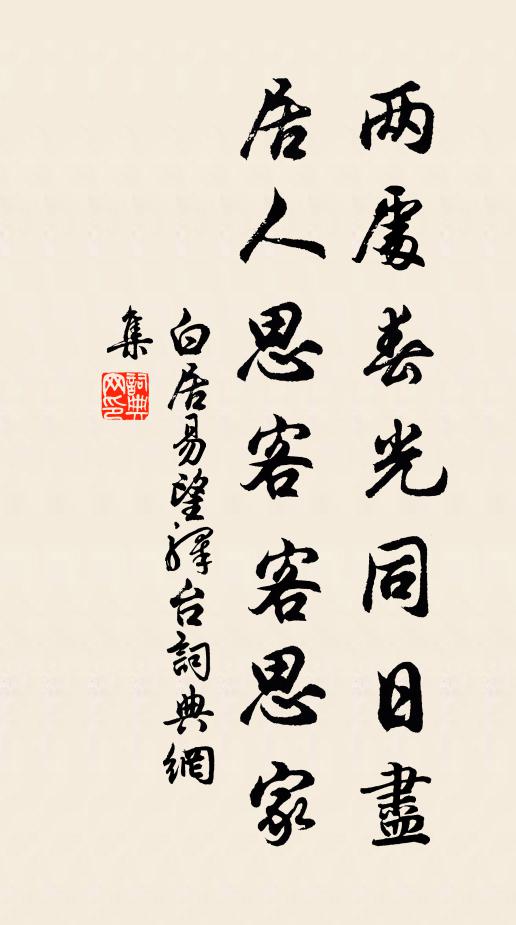 两處春光同日盡
居人思客客思家
白居易望驛台詞典網
集
詞典
网印